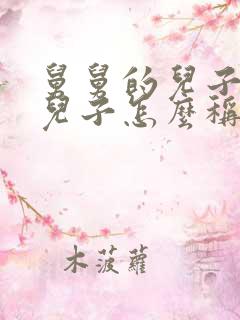 舅舅的兒子
兒子怎麼稱
木菠蘿